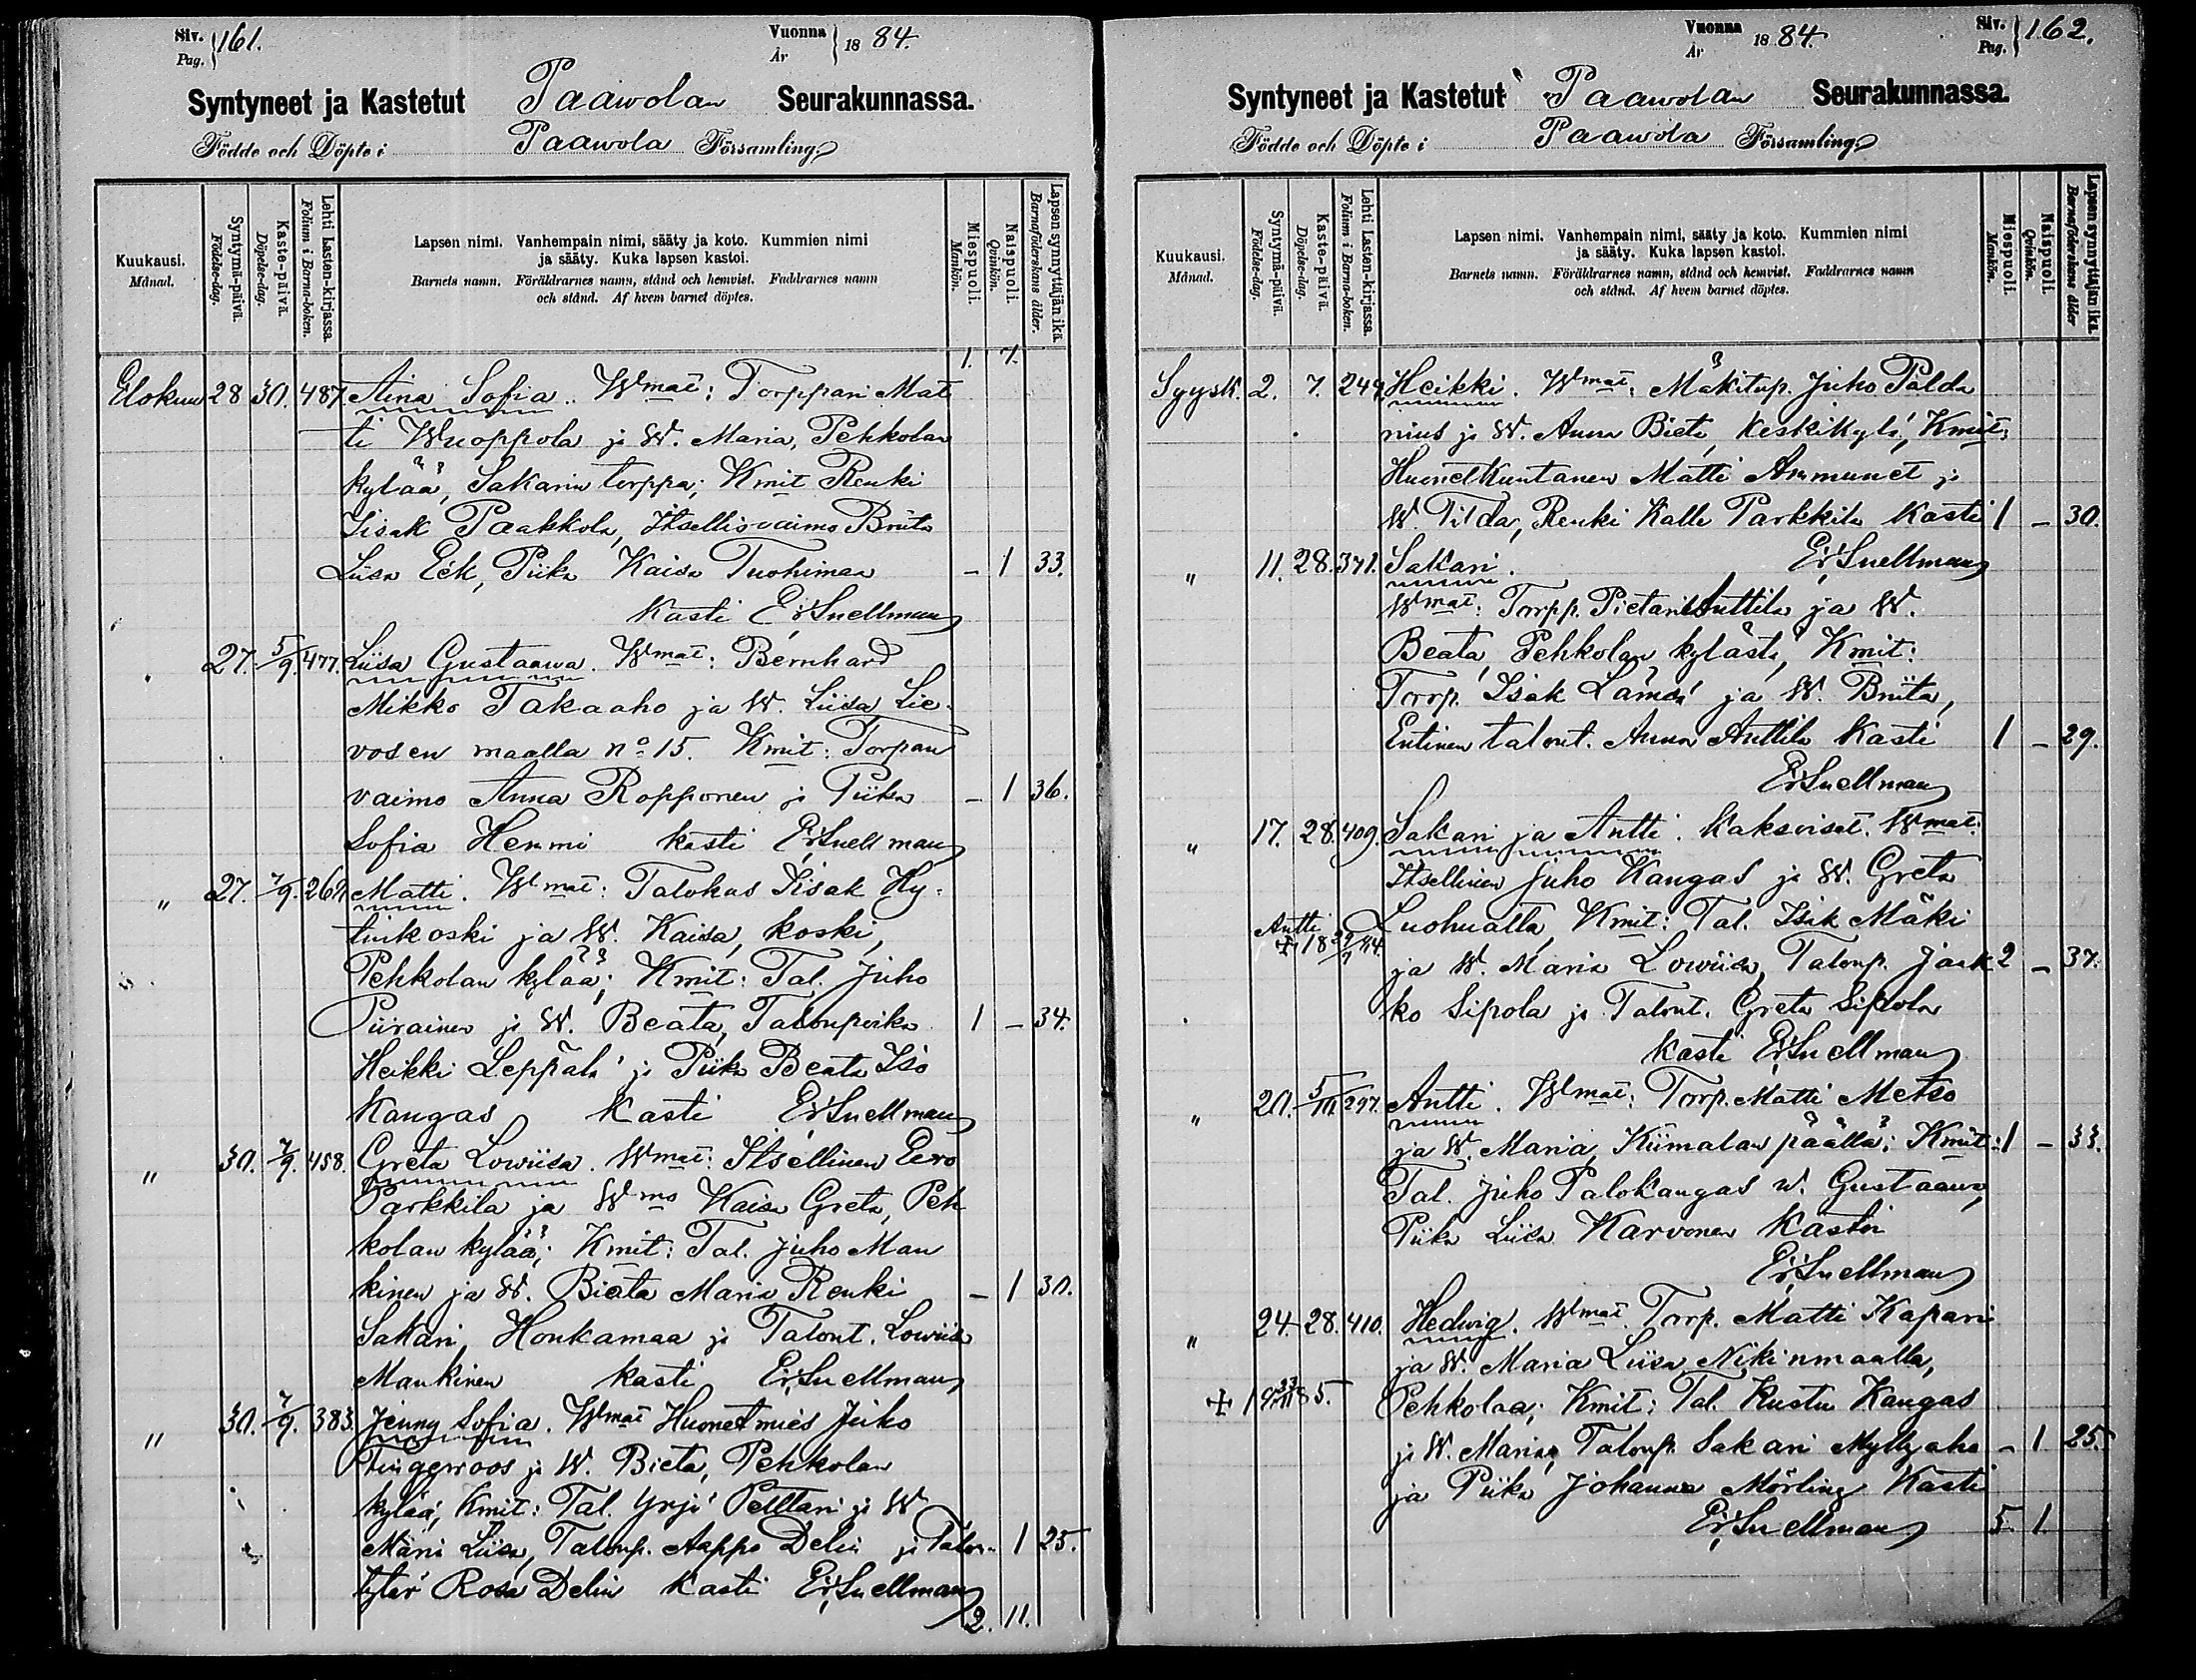 Siv. Pag. 161.
Vuonna År 1884.
Syntyneet ja Kastetut Paawolan Seurakunnassa.
Födde och Döpte i Paawola Församling
Kuukausi. Månad.
Syntymä-päivä. Födelse-dag.
Kaste-päivä. Döpelse-dag.
Lehti Lasten-kirjassa. Folium i Barna-boken.
Lapsen nimi. Vanhempain nimi, sääty ja koto. Kummien nimi
ja sääty. Kuka lapsen kastoi.
Barnets namn. Föräldrarnes namn, stånd och hemvist. Faddrarnes namn
och stånd. Af hvem barnet döptes.
Miespuoli. Mankön.
Naispuoli. Qvinkön.
Lapsensynnyttäjän ikä Barnaföderskans ålder.
1. 7.
Elokuu 28 30. 487. Aina Sofia. Wmat: Torppari Mat
ti Wuoppola ja W. Maria, Pehkolan
kylää, Sakarin torppa; Kmit Renki
Iisak Paakkola, Itsellisvaimo Briita
Liisa Eek, Piika Kaisa Tuohimaa - 1 33.
Kasti Er Snellman
27. 5/9. 477. Liisa Gustaawa. Wmat: Bernhard
Mikko Takaaho ja W. Liisa Lie
vosen maalla no 15. Kmit: Torpan
vaimo Anna Ropponen ja Piika - 1 36.
Sofia Hemmi kasti Er Snellman
" 27. 7/9. 267. Matti. Wmat: Talokas Iisak Hy
tinkoski ja W. Kaisa, koski,
Pehkolan kylää; Kmit: Tal. Juho
Piirainen ja W. Beata, Talonpoika 1 - 34.
Heikki Leppälä ja Piika Beata Iso
Kangas Kasti Er Snellman
" 30. 7/9. 458. Greta Lowiisa. Wmat: Itsellinen Eero
Parkkila ja Wmo Kaisa Greta, Peh
kolan kylää; Kmit: Tal. Juho Man
kinen ja W. Bieta Maria Renki - 1 30.
Sakari Honkamaa ja Talont. Lowiisa
Mankinen kasti Er Snellman
" 30. 7/9. 383. Jenny Sofia. Wmat Huonetmies Juho
Fingerroos ja W. Bieta, Pehkolan
kylää, Kmit: Tal. Yrjö Pelttari ja W
Maria Liisa, Talonp. Aappo Delin ja Talon 1 25.
tytär Rosa Delin Kasti Er Snellman
2. 11.
Vuonna År 1884.
Siv. Pag. 162.
Syntyneet ja Kastetut Paawolan Seurakunnassa.
Födde och Döpte i Paawola Församling
Kuukausi. Månad.
Syntymä-päivä. Födelse-dag.
Kaste-päivä. Döpelse-dag.
Lehti Lasten-kirjassa. Folium i Barna-boken.
Lapsen nimi. Vanhempain nimi, sääty ja koto. Kummien nimi
ja sääty. Kuka lapsen kastoi.
Barnets namn. Föräldrarnes namn, stånd och hemvist. Faddrarnes namn
och stånd. Af hvem barnet döptes.
Miespuoli. Mankön.
Naispuoli. Qvinkön.
Lapsensynnyttäjän ikä Barnaföderskans ålder
Syysk. 2. 7. 247. Heikki. Wmat: Mäkitup. Juho Palda
nius ja W. Anna Bieta Keskikylä, Kmit:
Huonetkuntanen Matti Ammunet ja
W. Tilda, Renki Kalle Parkkila Kasti 1 - 30.
" 11. 28. 371. Sakari. Er Snellman
Wmat: Torpp. Pietari Anttila ja W.
Beata, Pehkolan kylästä, Kmit:
Torp. Isak Lämsä ja W. Briita,
Entinen talont. Anna Anttila Kasti 1 - 29.
Er Snellman
" 17. 28. 409. Sakari ja Antti. Kaksoiset. Wmat.
Itsellinen Juho Kangas ja W. Greta
Antti Luohualla, Kmit: Tal. Isak Mäki
ja W. Maria Lowiisa, Talonp. Jaak 2 - 37.
ko Sipola ja Talont. Greta Sipola
kasti Er Snellman
" 20. 5/10 297. Antti. Wmat: Torp. Matti Metso
ja W. Maria, Kiimalan päällä; Kmit: 1 - 33.
Tal. Juho Palokangas w. Gustaawa,
Piika Liisa Karvonen Kastoi
Er Snellman
" 24. 28. 410. Hedwig. Wmat. Torp. Matti Kapari
ja W. Maria Liisa Nikinmaalla,
Pehkolaa; Kmit: Tal. Kustu Kangas
ja W. Maria, Talonp. Sakari Myllyaho - 1 25.
ja Piika Johanna Mörling Kasti
Er Snellman 5. 1.